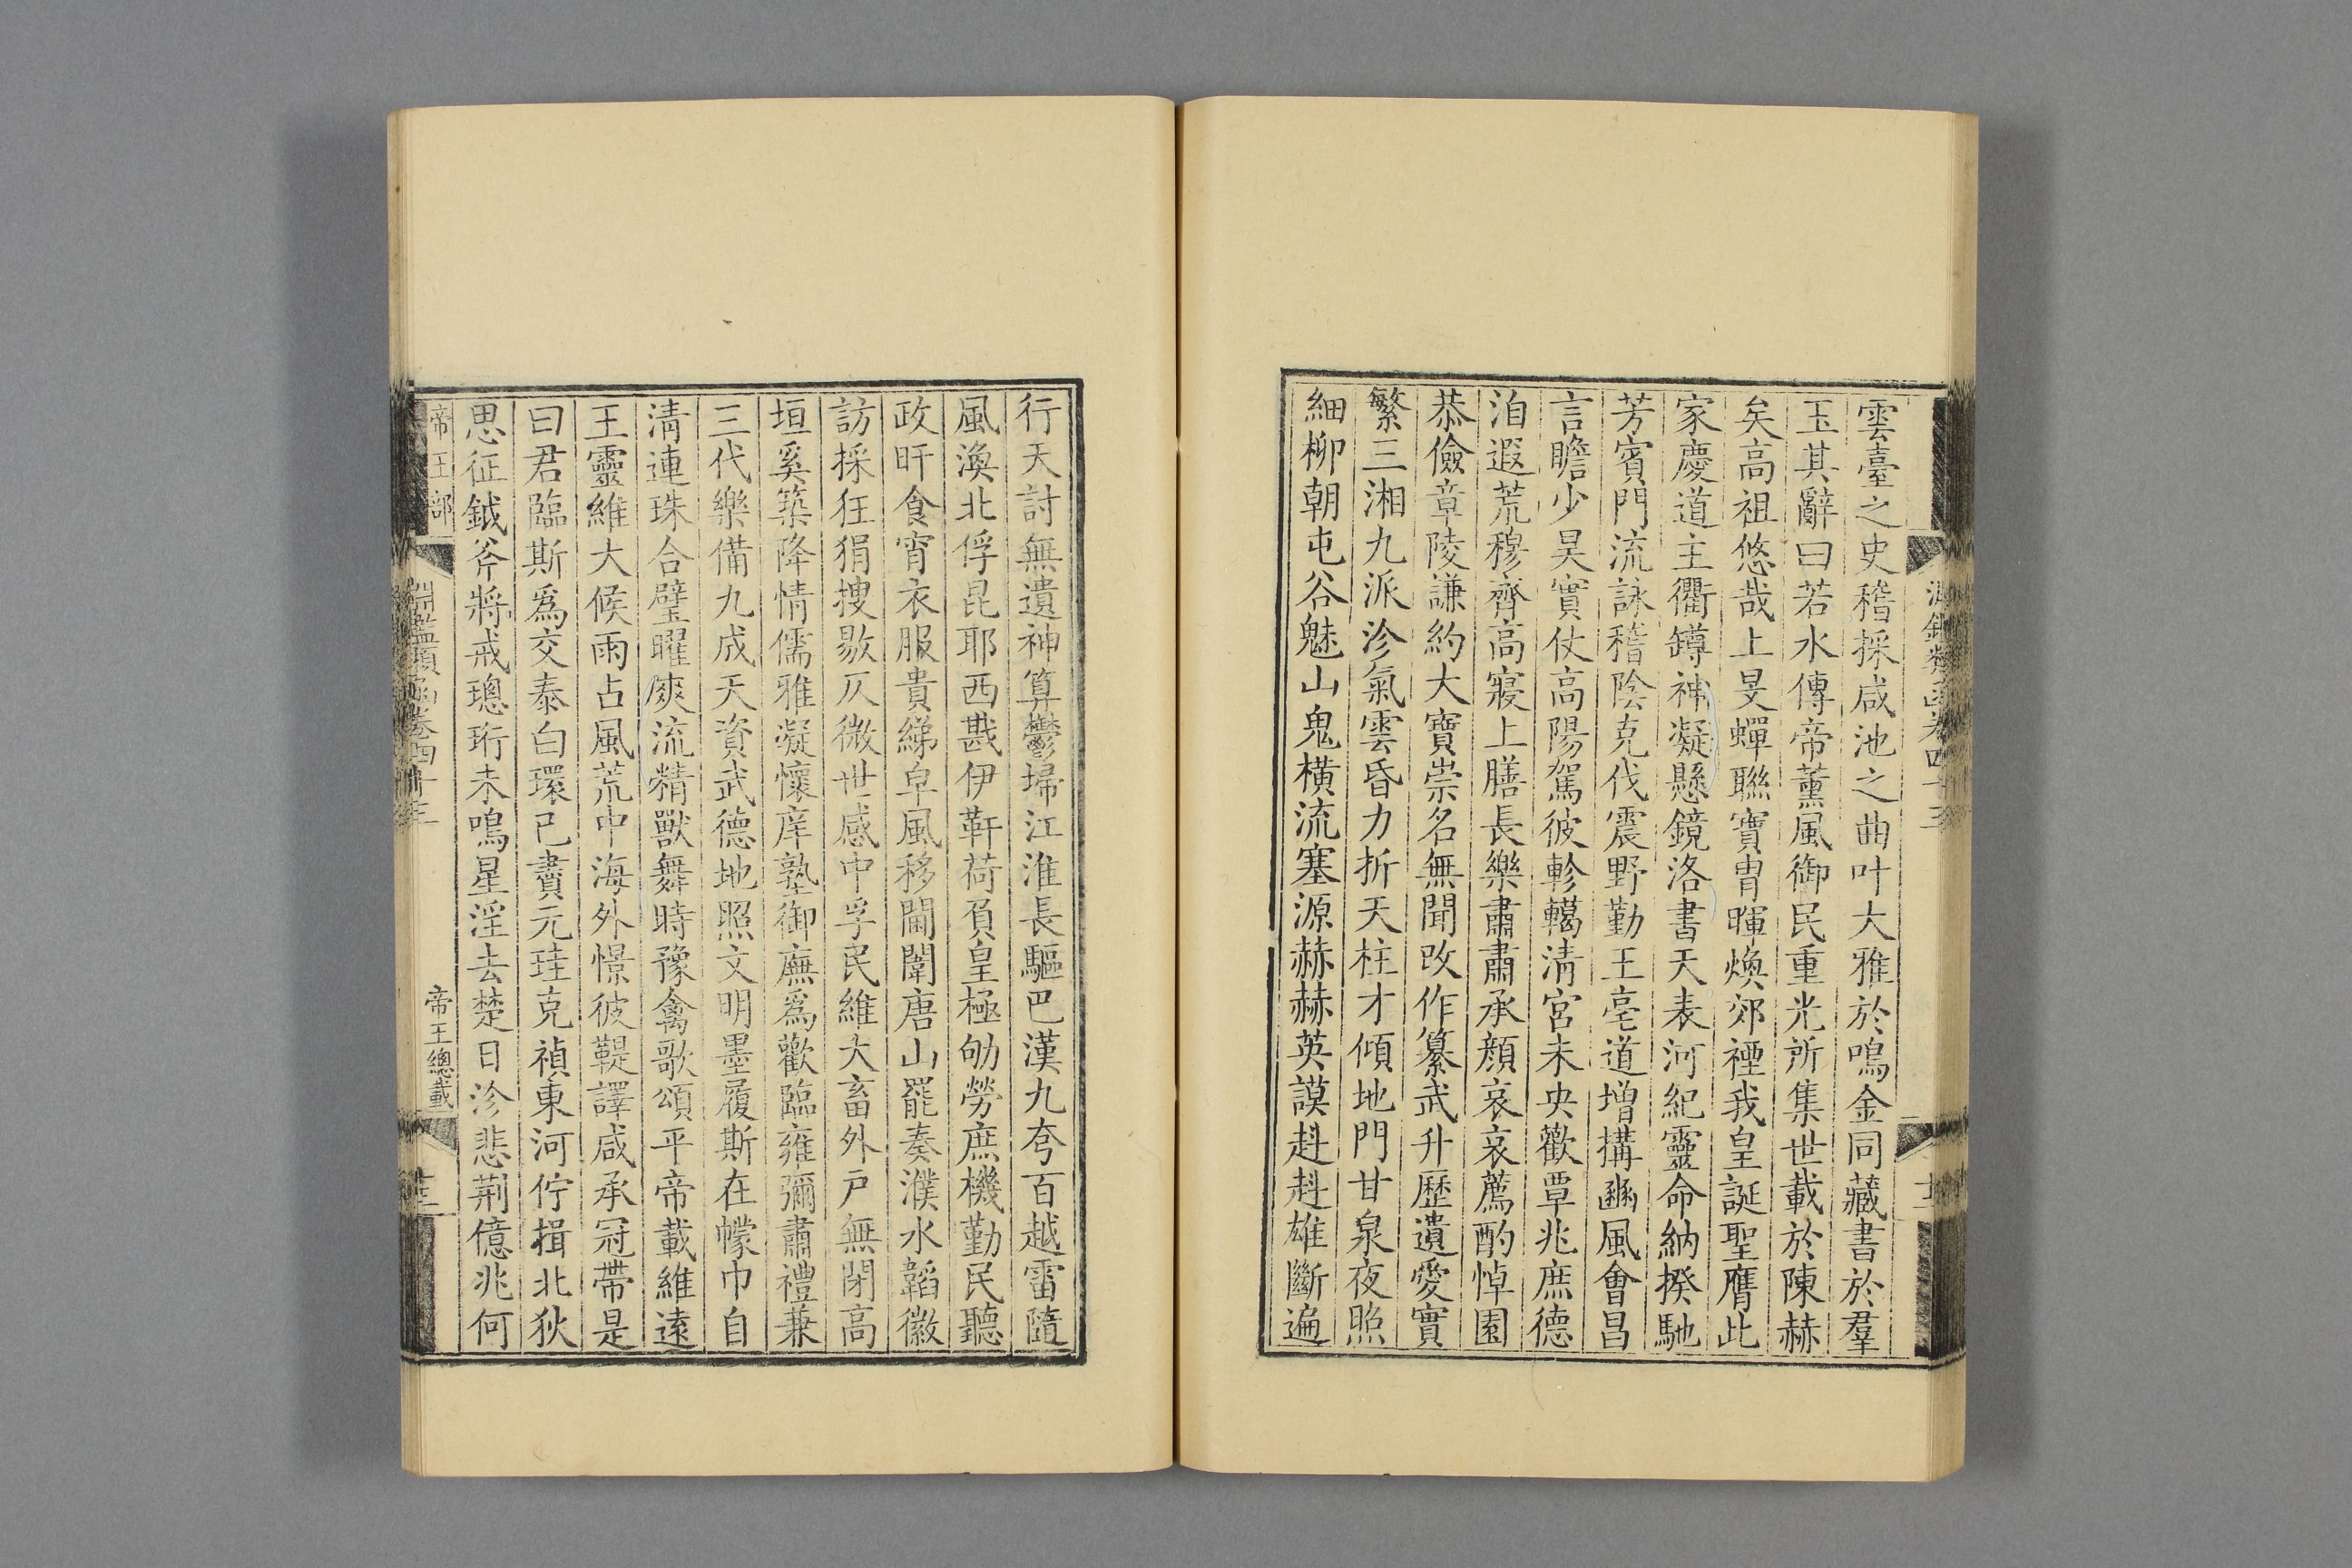 雲臺之史稽採咸池之曲叶大雅於鳴金同藏書於羣
玉其辭曰若水傳帝薰風御民重光所集世載於陳赫
矣高祖悠哉上旻蟬聯寶胄暉煥郊禋我皇誕聖膺此
家慶道主衢罇神凝懸鏡洛書天表河紀靈命納揆馳
芳賓門流詠稽陰克伐震野勤王亳道增搆豳風會昌
言瞻少昊實仗高陽駕彼軫轕清宮未央歡覃兆庶德
洎遐荒穆齊高寢上膳長樂肅肅承顔哀哀薦酌悼園
恭儉章陵謙約大寶崇名無聞改作纂武升歷遺愛實
繁三湘九派沴氣雲昏力折天柱才傾地門甘泉夜照
細柳朝屯谷魅山鬼橫流塞源赫赫英謨赳赳雄斷遍
行天討無遺神算鬱埽江淮長驅巴漢九夸百越雷隨
風渙北俘昆耶西戡伊靬荷負皇極劬勞庶機勤民聽
政旰食宵衣服貴綈皁風移闈闈唐山罷奏濮水韜徽
訪採狂狷搜敭仄微世感中孚民維大畜外戸無閉高
垣奚築降情儒雅凝懷庠塾御廡爲歡臨雍彌肅禮兼
三代樂備九成天資武德地照文明墨履斯在幪巾自
清連珠合璧曜㷸流精獸舞時豫禽歌頌平帝載維遠
王靈維大候雨占風荒中海外憬彼鞮譯咸承冠帶是
曰君臨斯爲交泰白環已賮元珪克禎東河佇揖北狄
思征鉞斧將戒璁珩未鳴星淫去楚日沴悲荆億兆何
帝王部
淵鑑類函卷四十三
帝王總載